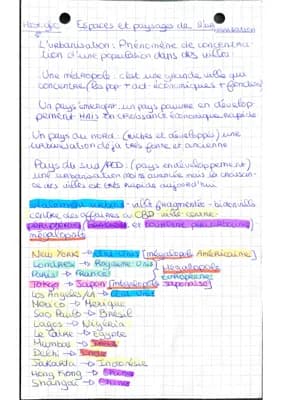 Espaces et paysages de l'urbanisation
L'urbanisation : Phénomène de concentra-
tion d'une population dans des villes.
Une métropole : c'est une grande ville qui
concentre (les pop + act. économiques + fonctions)
Un pays émergent : un pays pauvre en dévelop-
pement MAIS en croissance économique rapide
Un pays du nord : (riches et développés) une
urbanisation déjà très forte et ancienne
Pays du Sud/PED : (pays en développement)
une urbanisation moins avancée mais la croissan-
ce des villes est très rapide aujourd'hui
étalement urbain - ville fragmentée - bidonville
centre des affaires ou CBD ville-centre
périphérie (banlieue et couronne périurbaine)
mégalopole
New York → États-Unis [mégalopole Américaine]
Londres → Royaume-Uni
Paris → France
] Mégalopole européenne
Tokyo → Japon [mégalopole japonaise]
Los Angeles/LA → États-Unis
Mexico → Mexique
Sao Paulo → Brésil
Lagos → Nigéria
Le Caire → Égypte
Mumbai → Inde
Delhi → Inde
Jakarta → Indonésie
Hong Kong → Chine
Shangai → Chine